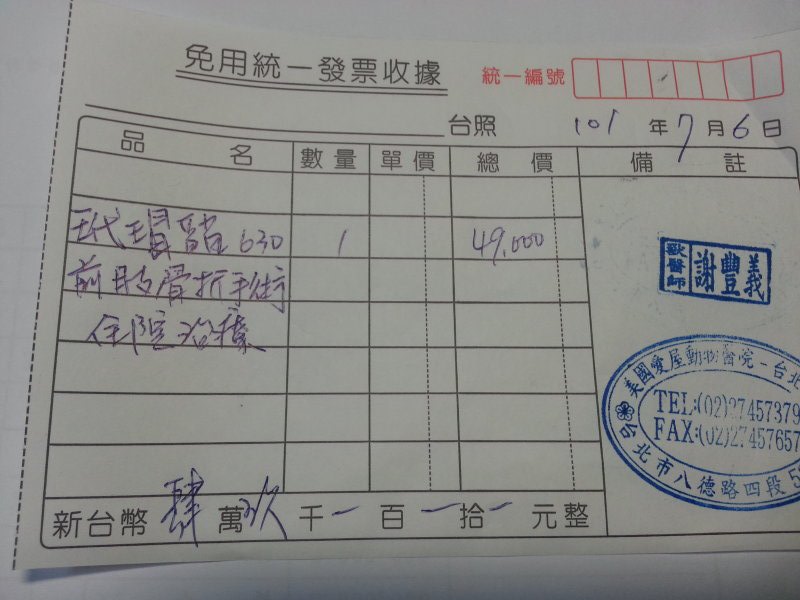 免用統一發票收據
統一編號
台照 101年7月6日
品名 數量 單價 總價 備註
玳瑁貓630 1 49,000
前肢骨折手術
住院治療
獸醫師 謝豐義
美國愛屋動物醫院－台北
TEL:(02)27457379
FAX:(02)2745765
台北市八德路四段5
新台幣肆萬玖千－百－拾－元整